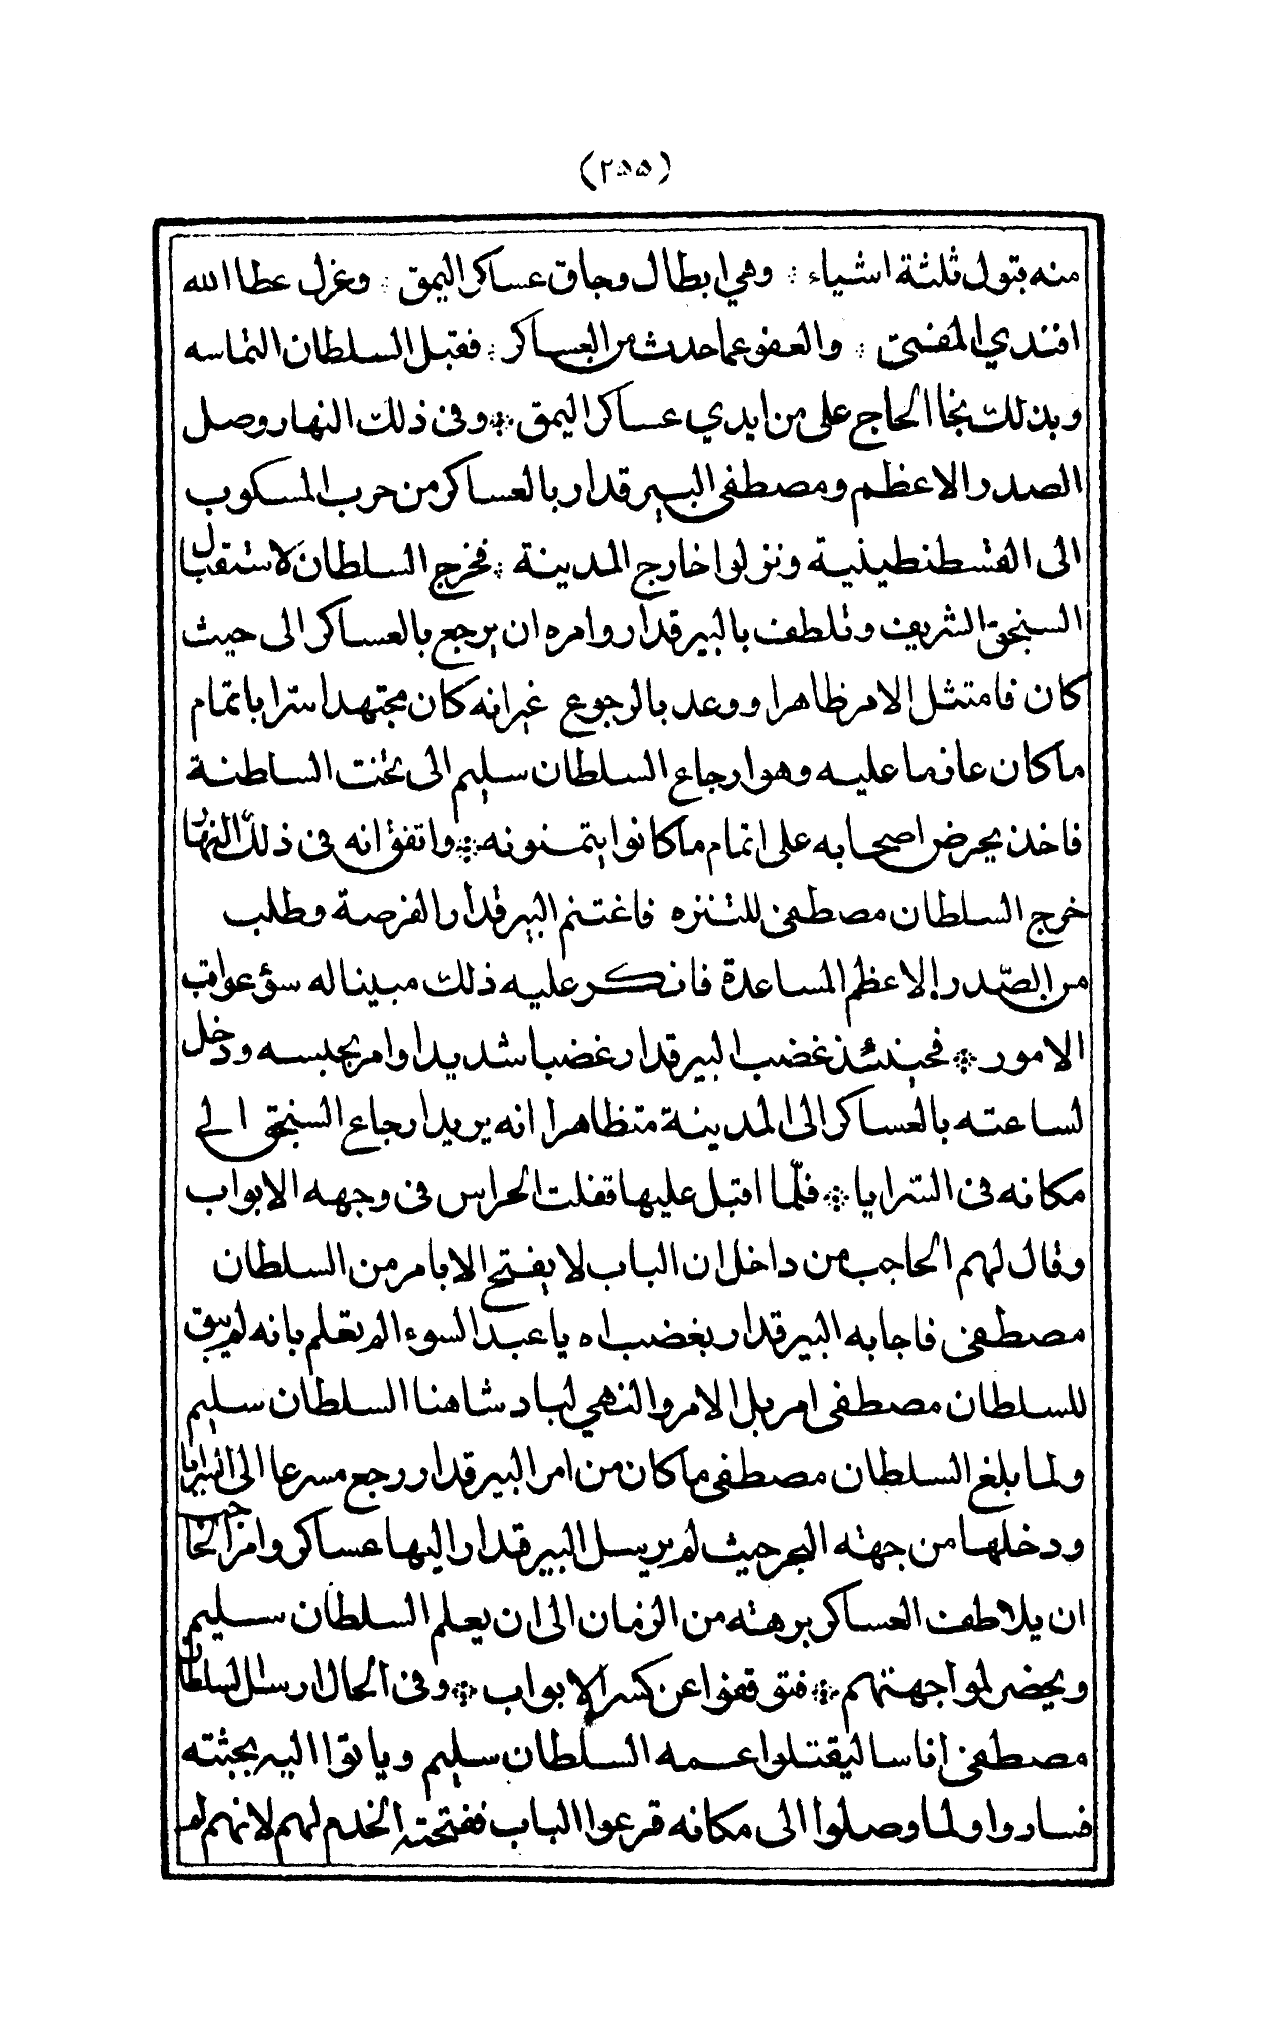 (٢٥٥)
منه بقول ثلثة اشياء ؞ وهي ابطال وجاق عساكر اليمق ؞ وعزل عطا الله
افندي المفتى ؞ والعفو عما حدث من العساكر ؞ فقبل السلطان التماسه
وبذلك نجا الحاج على من ايدي عساكر اليمق ؞ وفى ذلك النهار وصل
الصدر الاعظم ومصطفى البيرقدار بالعساكر من حرب المسكوب
الى القسطنطينية ونزلوا خارج المدينة ؞ فخرج السلطان لاستقبال
السنجق الشريف وتلطف بالبيرقدار وامره ان يرجع بالعساكر الى حيث
كان فامتثل الامر ظاهرا ووعد بالرجوع غير انه كان مجتهدا سرا باتمام
ما كان عازما عليه وهو ارجاع السلطان سليم الى تخت السلطنة
فاخذ يحرض اصحابه على اتمام ما كانوا يتمنونه ؞ واتفق انه فى ذلك النهار
خرج السلطان مصطفى للتنزه فاغتنم البيرقدار الفرصة وطلب
من الصّدر الاعظم المساعدة فانكر عليه ذلك مبينا له سؤ عواقب
الامور ؞ فحينئذ غضب البيرقدار غضبا شديدا وامر بحبسه ودخل
لساعته بالعساكر الى المدينة متظاهرا انه يريد ارجاع السنجق الى
مكانه فى السّرايا ؞ فلّما اقبل عليها قفلت الحراس فى وجهه الابواب
وقال لهم الحاجب من داخل ان الباب لا يفتح الا بامر من السلطان
مصطفى فاجابه البيرقدار بغضب اه يا عبد السوء الم تعلم بانه لم يبق
للسلطان مصطفى امر بل الامر والنهي لبادشاهنا السلطان سليم
ولما بلغ السلطان مصطفى ما كان من امر البيرقدار رجع مسرعا الى السرايا
ودخلها من جهته البحر حيث لم يرسل البيرقدار اليها عساكر وامر الحاجب
ان يلاطف العساكر برهته من الزمان الى ان يعلم السلطان سليم
ويحضر لمواجهتهم ؞ فتوقفوا عن كسر الابواب ؞ وفى الحال ارسل السلطان
مصطفى اناسا ليقتلوا عمه السلطان سليم وياتوا اليه بجثته
فساروا ولما وصلوا الى مكانه قرعوا الباب ففتحته الخدم لهم لانهم لم